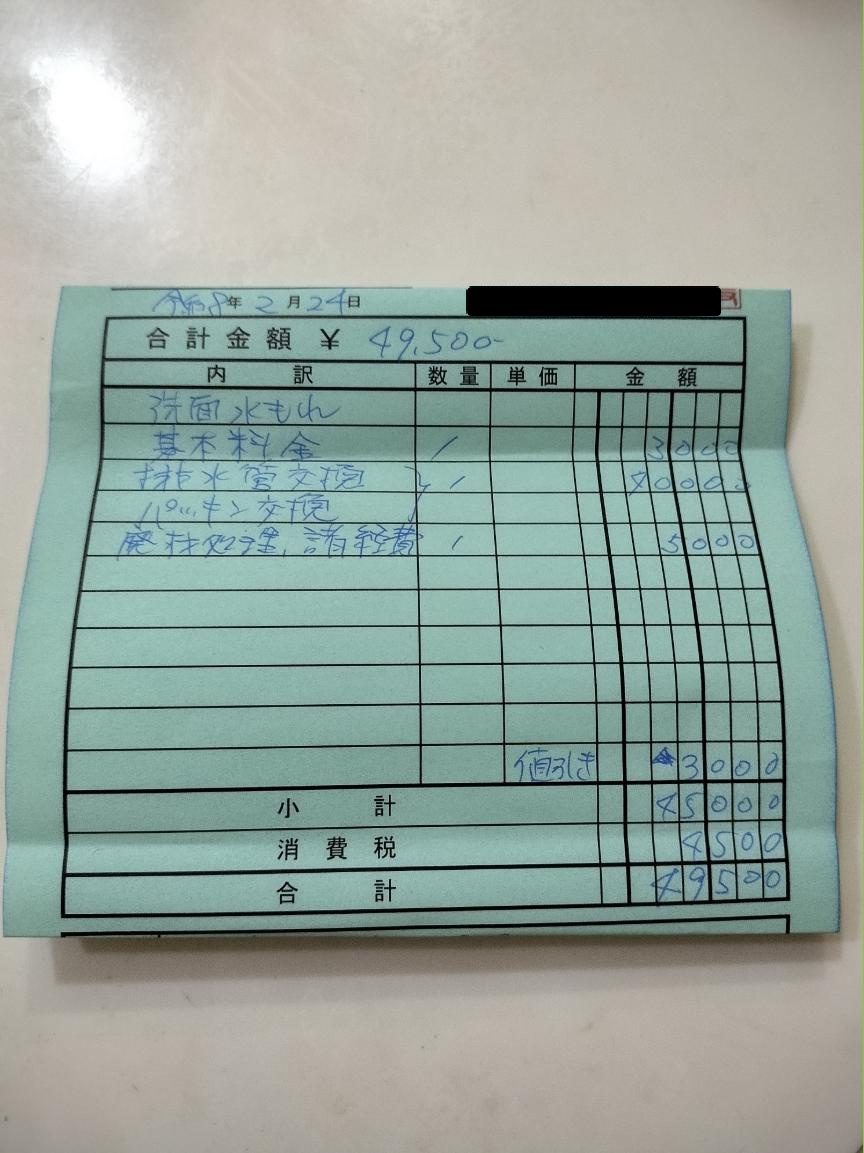 令和8年2月24日
合計金額 ¥ 49,500-
内訳 数量 単価 金額
洗面水もれ
基本料金 1 3000
排水管交換 } 1 40000
パッキン交換
廃材処理、諸経費 1 5000
値引き ▲3000
小計 45000
消費税 4500
合計 49500